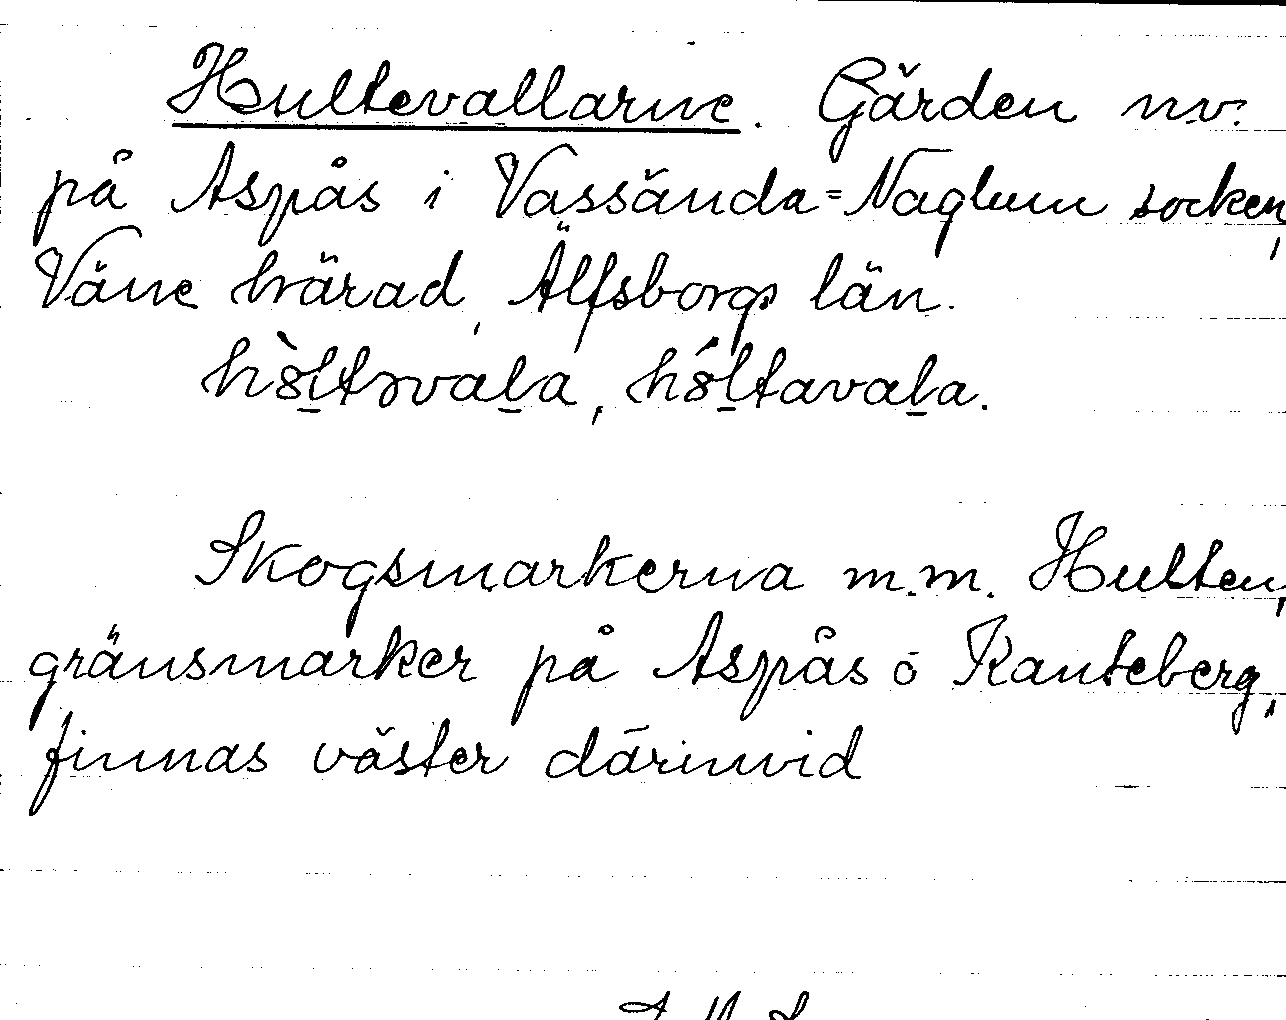 Hultevallarne. Gärden n.v.
på Aspås i Vassända=Naglum socken,
Väne härad, Älfsborgs län.
hòltəvala, hóltavala.
Skogsmarkerna m.m. Hulten,
gränsmarker på Aspås o Kanteberg,
finnas väster därinvid